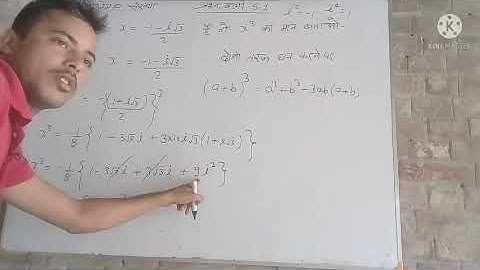 संख्या 5.1 i² = -1 i⁴ = 1
x = (-1 - i√3)/2 है तो x³ का मान
x = (-1 - i√3)/2 दोनो तरफ घन करने पर
= {(1 + i√3)/2}³ (a+b)³ = a³ + b³ + 3ab(a+b)
x³ = -1/8 {1 - 3√3 i + 3×1×i√3 (1 + i√3)}
x³ = -1/8 {1 - 3√3 i + 3√3 i + 9i²}
KINEMASTER